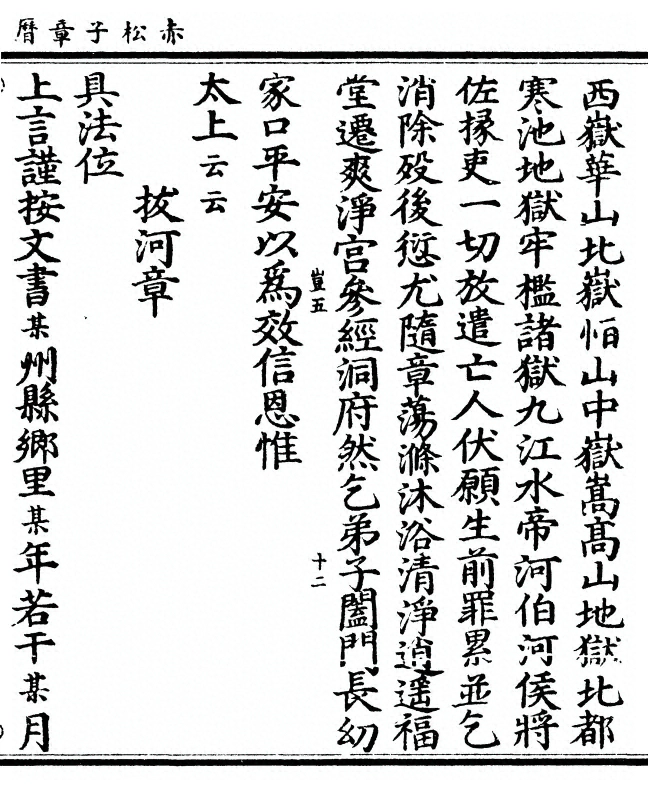 赤松子章曆
西嶽華山北嶽恒山中嶽嵩高山地獄北都
寒池地獄牢檻諸獄九江水帝河伯河侯將
佐掾吏一切放遣亡人伏願生前罪累並乞
消除殁後愆尤隨章蕩滌沐浴清淨逍遥福
堂遷爽淨宫參經洞府然乞弟子闔門長幼
豈五
十二
家口平安以爲效信恩惟
太上云云
拔河章
具法位
上言謹按文書某州縣鄉里某年若干某月